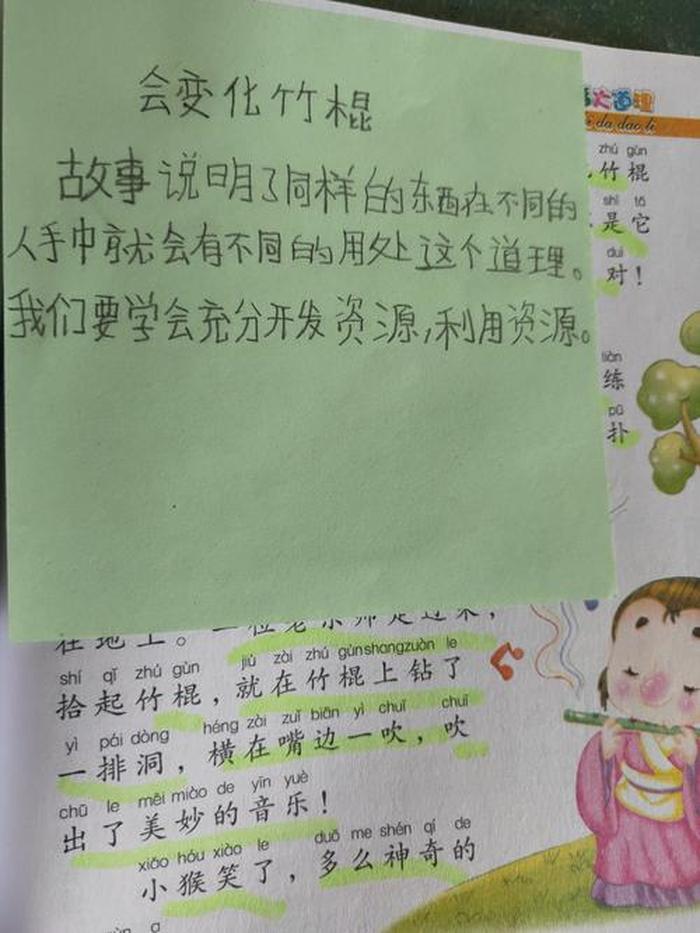 会变化竹棍
故事说明了同样的东西在不同的
人手中就会有不同的用处这个道理。
我们要学会充分开发资源,利用资源。
大道理
da dao li
zhú gùn
竹棍
shì tā
是它
duì
对！
liàn
练
pū
扑
在地上。一位老乐师走过来，
shí qǐ zhú gùn jiù zài zhú gùn shang zuàn le
拾起竹棍，就在竹棍上钻了
yì pái dòng héng zài zuǐ biān yì chuī chuī
一排洞，横在嘴边一吹，吹
chū le měi miào de yīn yuè
出了美妙的音乐！
xiǎo hóu xiào le duō me shén qí de
小猴笑了，多么神奇的